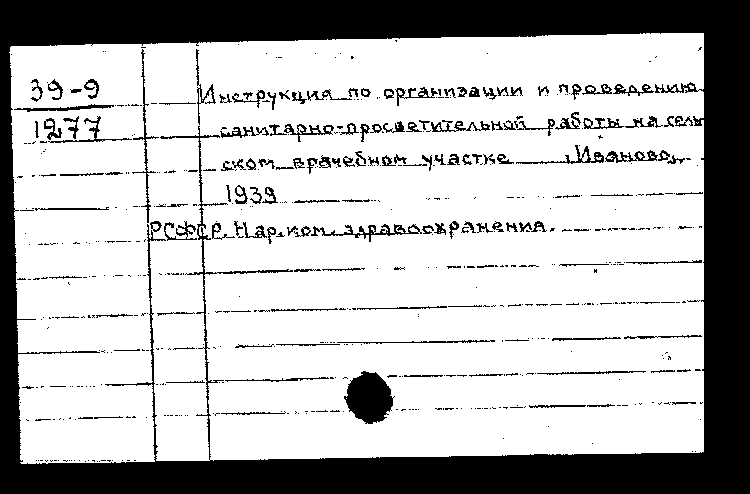 39-9
1277
Инструкция по организации и проведению
санитарно-просветительной работы на сель
ском врачебном участке , Иваново,
1939
РСФСР. Нар. ком. здравоохранения.